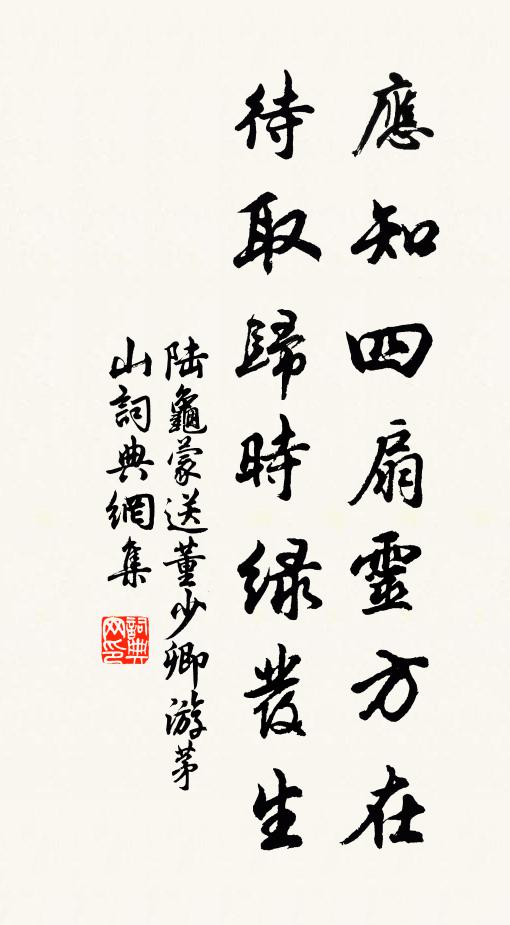 應知四扇靈方在
待取歸時綠發生
陸龜蒙送董少卿游茅
山詞典網集
詞典
网印